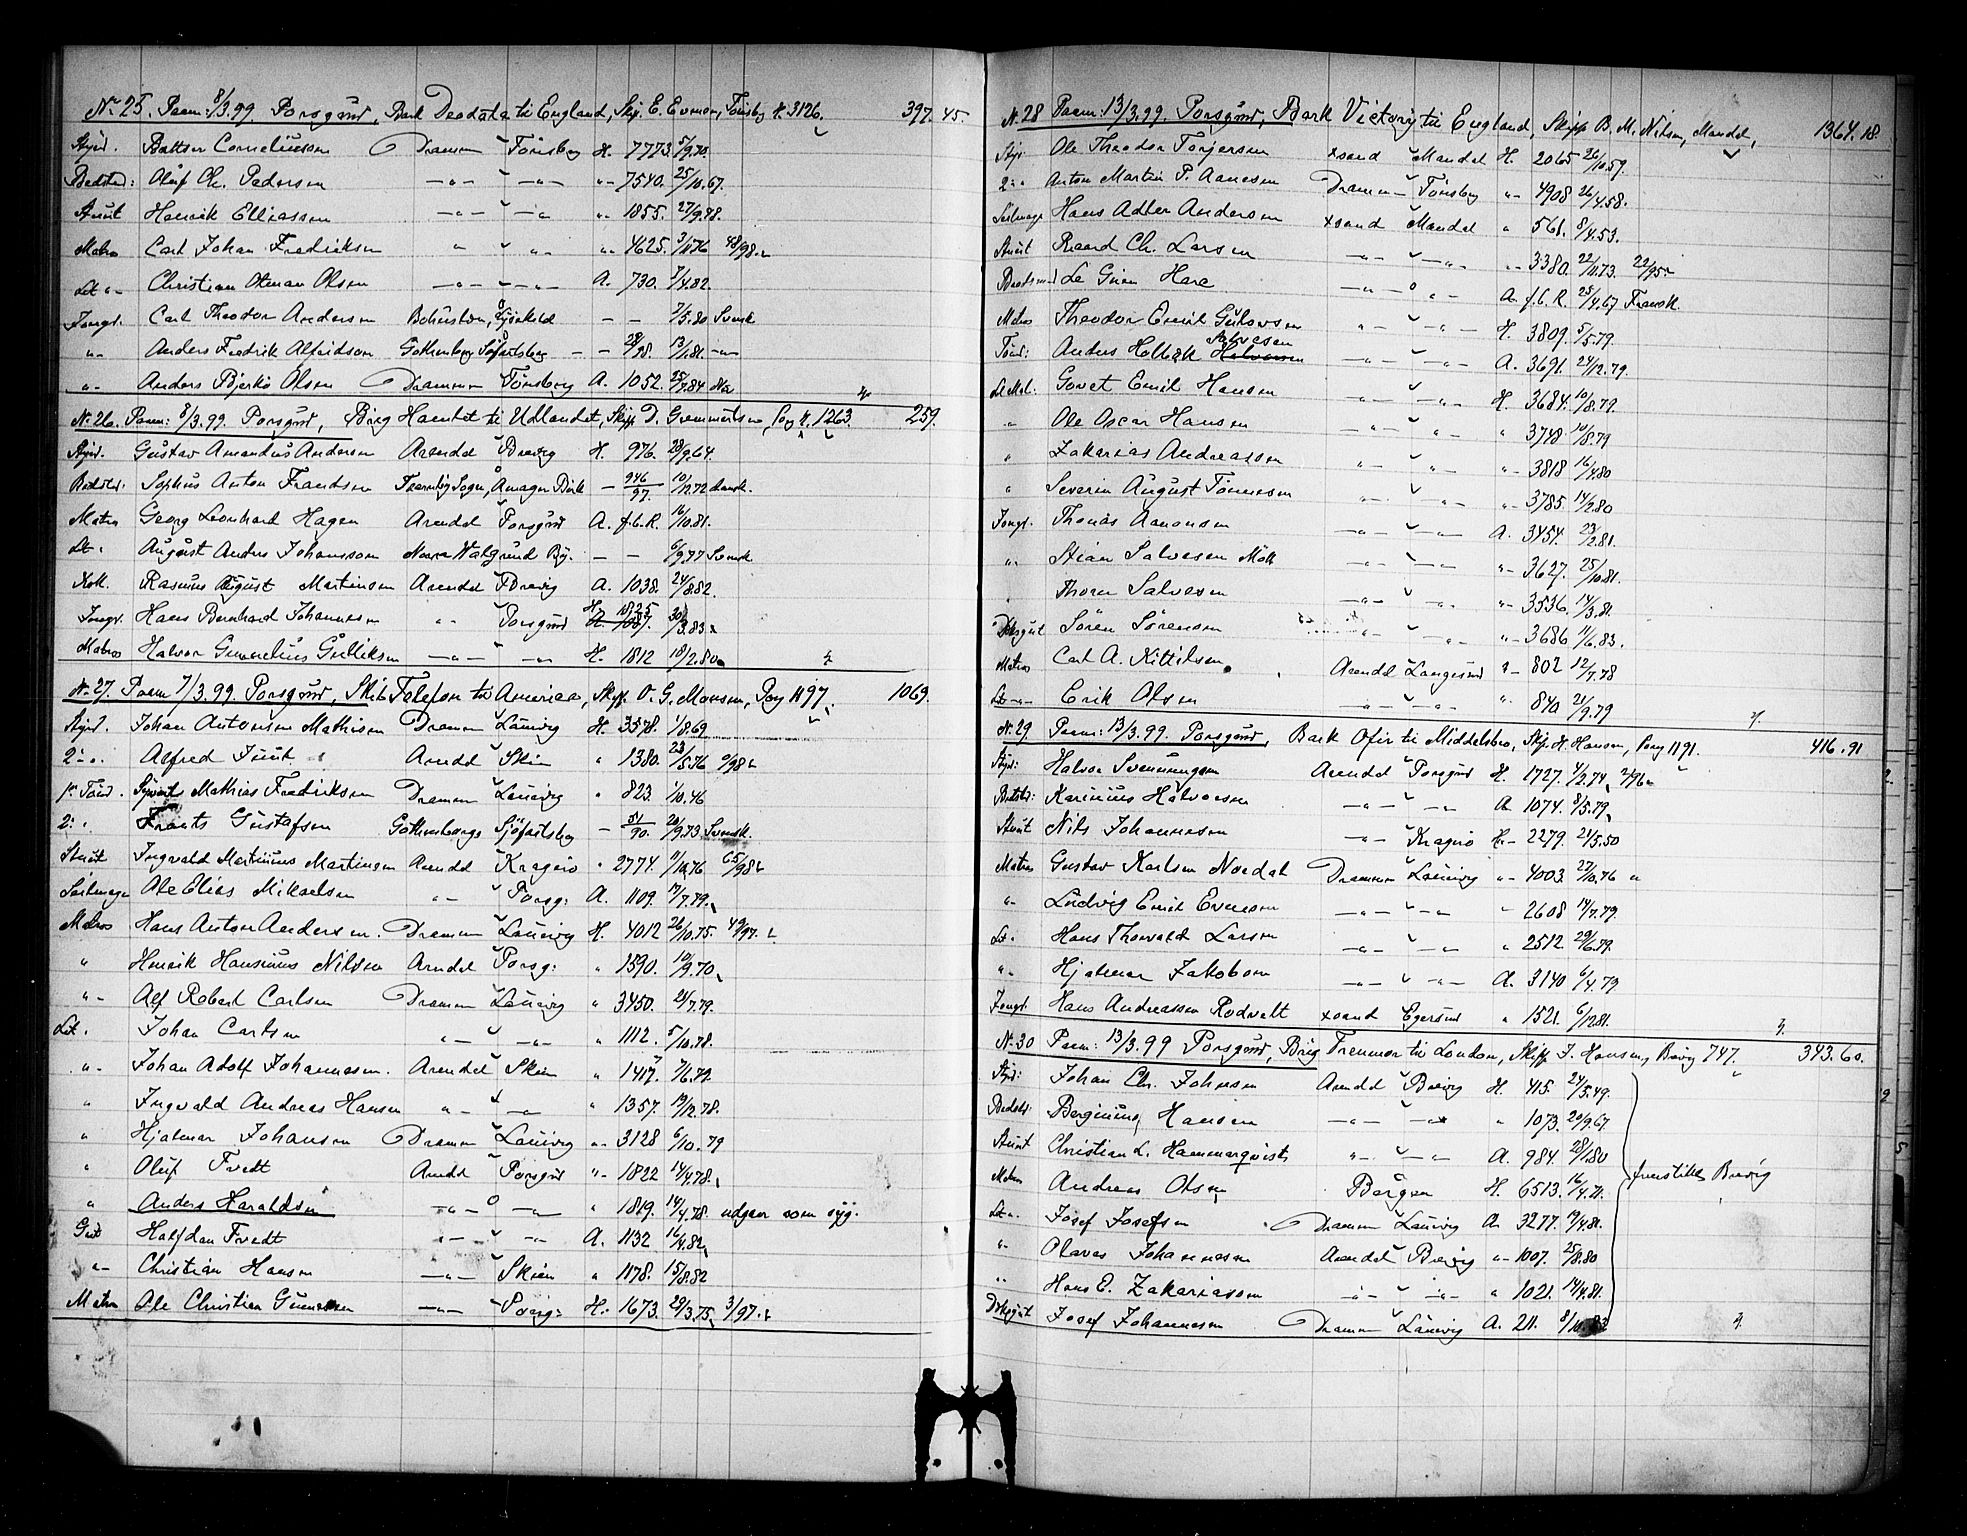 Nr 25. Paam: 8/3.99. Porsgrund, Bark Deodata til England, Skip. E. Evensen, Tönsberg H. 3126. 397.45.
Styrd. Baltser Corneliussen Drammen Tönsberg H. 7773. 5/9.70.
Bedstm: Oluf Chr. Pedersen —"— —"— "- 7540. 25/10.67.
Stuut Henrik Elliassen —"— —"— "- 1855. 27/9.48.
Matros Carl Johan Fredriksen " " "- 4625. 3/11.76 48/98.
Let "- Christian Otman Olsen —"— —"— A. 730. 7/4.82.
Jungd. Carl Theodor Andersen Bohuslän, Sjöskold — — 7/5.80 Svensk
"- Anders Fredrik Alfridsson Gothenborg Sjöfartsbog — — 28/98. 13/1.81. —"—
"- Anders Bjerkö Olsen Drammen Tönsberg A. 1052. 25/7.84
N. 26. Paam: 8/3.99. Porsgrund, Brig Haentet til Udlandet, Skip. D. Gommertsen, Porg H. 1263. 259.
Styrd. Gustav Amandus Andersen Arendal Brevig H. 976. 28/9.64.
Bedstm: Sophus Anton Frandsen Taarnby Sogn, Amager Birk — 946/97. 10/12.72 dansk.
Matros Georg Leonhard Hagen Arendal Porsgrund A. f.C.R. 16/10.81.
Let " August Anders Johansson Norra Walgrund By. — — 6/9.77 Svensk
Kok. Rasmus August Martinsen Arendal Brevig A. 1038. 24/8.82.
Jungd. Hans Bernhard Johannesen "- Porsgrund H. 1825 30/3.83.
Matros Halvor Gunnelius Gulliksen —"— —"— H. 1812 18/2.80
N. 27. Paam 7/3.99. Porsgrund, Skib Telefon til Amerika, Skip. O. G. Monsen, Porg 1197. 1069.
Styrd. Johan Antonsen Mathisen Drammen Laurvig H. 3578. 1/8.69
2- ". Alfred Juul Arendal Skien " 1380. 23/5.76 9/98
1st Tönd. Syvert Mathias Fredriksen Drammen Laurvig " 823. 1/10.46
2: " Frants Gustafsen Gothenborgs Sjöfartsbog — 51/90. 20/9.73 Svensk.
Stuut Ingvald Martinius Martinsen Arendal Kragerö " 2774. 9/10.76 65/98
Seilmager Ole Elias Mikaelsen "- Porsg: A. 1109. 17/7.79.
Matros Hans Anton Andersen. Drammen Laurvig H. 4012 26/10.75. 49/97.
" Henrik Hansinius Nilsen Arendal Porsg: " 1590. 10/9.70
"- Alf Robert Carlsen Drammen Laurvig " 3450. 21/7.79.
Let. Johan Carlsen "- —"— " 1112. 5/10.78.
"- Johan Adolf Johannesen. Arendal Skien " 1417. 7/6.79.
" Ingvald Andreas Hansen "- —"— " 1357. 19/12.78.
" Hjalmar Johansen Drammen Laurvig "- 3128 6/10.79
" Oluf Tvedt Arendal Porsgrund "- 1822 14/4.78.
" Anders Haraldsen —"— —"— "- 1819. 14/4.78. udgaar som syg.
Gut Halfdan Tvedt "- "- A. 1132 16/4.82
"- Christian Hansen —"— Skien " 1178. 15/8.82
Matros Ole Christian Gunnersen —"— Porsg: H. 1673. 29/3.75. 3/97.
N. 28 Paam: 13/3.99. Porsgrund, Bark Victory til England, Skipp B. M. Nilsen, Mandal, 1364.18.
Styr. Ole Theodor Torjersen Xsand Mandal H. 2065 26/10.59.
2: " Anton Martin P. Aanesen Drammen Tönsberg "- 4908 26/4.58.
Seilmager Hans Adler Andersen Xsand Mandal " 561. 8/4.53.
Stuut Raard Ch. Larsen —"— —"— "- 3380. 22/11.73. 22/95
Baadsmd Le Guen Hare —"— "- A. f.C.R. 25/4.67 Fransk
Matros Theodor Emil Gustavsen "- —"— H. 3809. 5/5.79.
Tönd: Anders Holbæk Salvesen —"— —"— A. 3671. 24/12.79.
Let Mat: Govert Emil Hansen —"— H. 3684. 10/8.79.
" Ole Oscar Hansen —"— " "- 3748 10/8.79
" Zakarias Andreassen "- "- "- 3818 16/4.80
" Severin August Tönnesen "- —"— "- 3785. 14/2.80
Jungd. Thomas Aanonsen —"— —"— A. 3454. 23/2.81.
"- Stian Salvesen Möll —"— "- 3627. 25/10.81.
" Thorer Salvesen —"— —"— "- 3536. 14/3.81.
Dæksgut Sören Sörensen "- —"— "- 3686 11/6.83.
Matros Carl A. Kittilsen. Arendal Langesund "- 802 12/7.78
Let —"— Erik Olsen —"— —"— " 840. 21/9.79
N. 29 Paam: 13/3.99. Porsgrund, Bark Ofir til Middelsbro, Skip. H. Hansen, Porsg 1191. 416.91
Styrd: Halvor Svenningsen Arendal Porsgrund H. 1727. 4/2.74, 2/96
Bedstm: Karinius Halvorsen —"— —"— A. 1074. 8/5.79
Stuut Nils Johannesen "- Kragerö H. 2279. 24/5.50
Matros Gustav Karlsen Nordal Drammen Laurvig "- 4003. 27/10.76
"- Ludvig Emil Evensen —"— —"— " 2608 14/7.79.
Let. " Hans Thorvald Larsen "- —"— " 2512 29/6.79.
"- Hjalmar Jakobsen "- —"— A. 3140 6/4.79
Jungd. Hans Andreassen Rodvelt Xsand Egersund " 1521. 6/12.81.
N. 30 Paam: 13/3.99 Porsgrund, Brig Trenmor til London, Skipp. J. Hansen, Brevig 747. 343.60.
Styrd: Johan Chr. Johnsen Arendal Brevig H. 415. 24/5.49.
Bedstm: Berginius Hansen —"— —"— " 1073. 20/9.67
Stuut Christian L. Hammarqvist "- —"— A. 984. 28/1.80
Matros Andreas Olsen Bergen H. 6513. 16/4.71.
Let ". Josef Josefsen Drammen Laurvig A. 3277. 19/4.81. fremstilles Brevig
"- Olaves Johannesen Arendal Brevig "- 1007. 25/8.80
"- Hans E. Zakariassen "- "- " 1021. 14/4.81.
Dæksgut Josef Johannesen Drammen Laurvig A. 211. 8/10.83